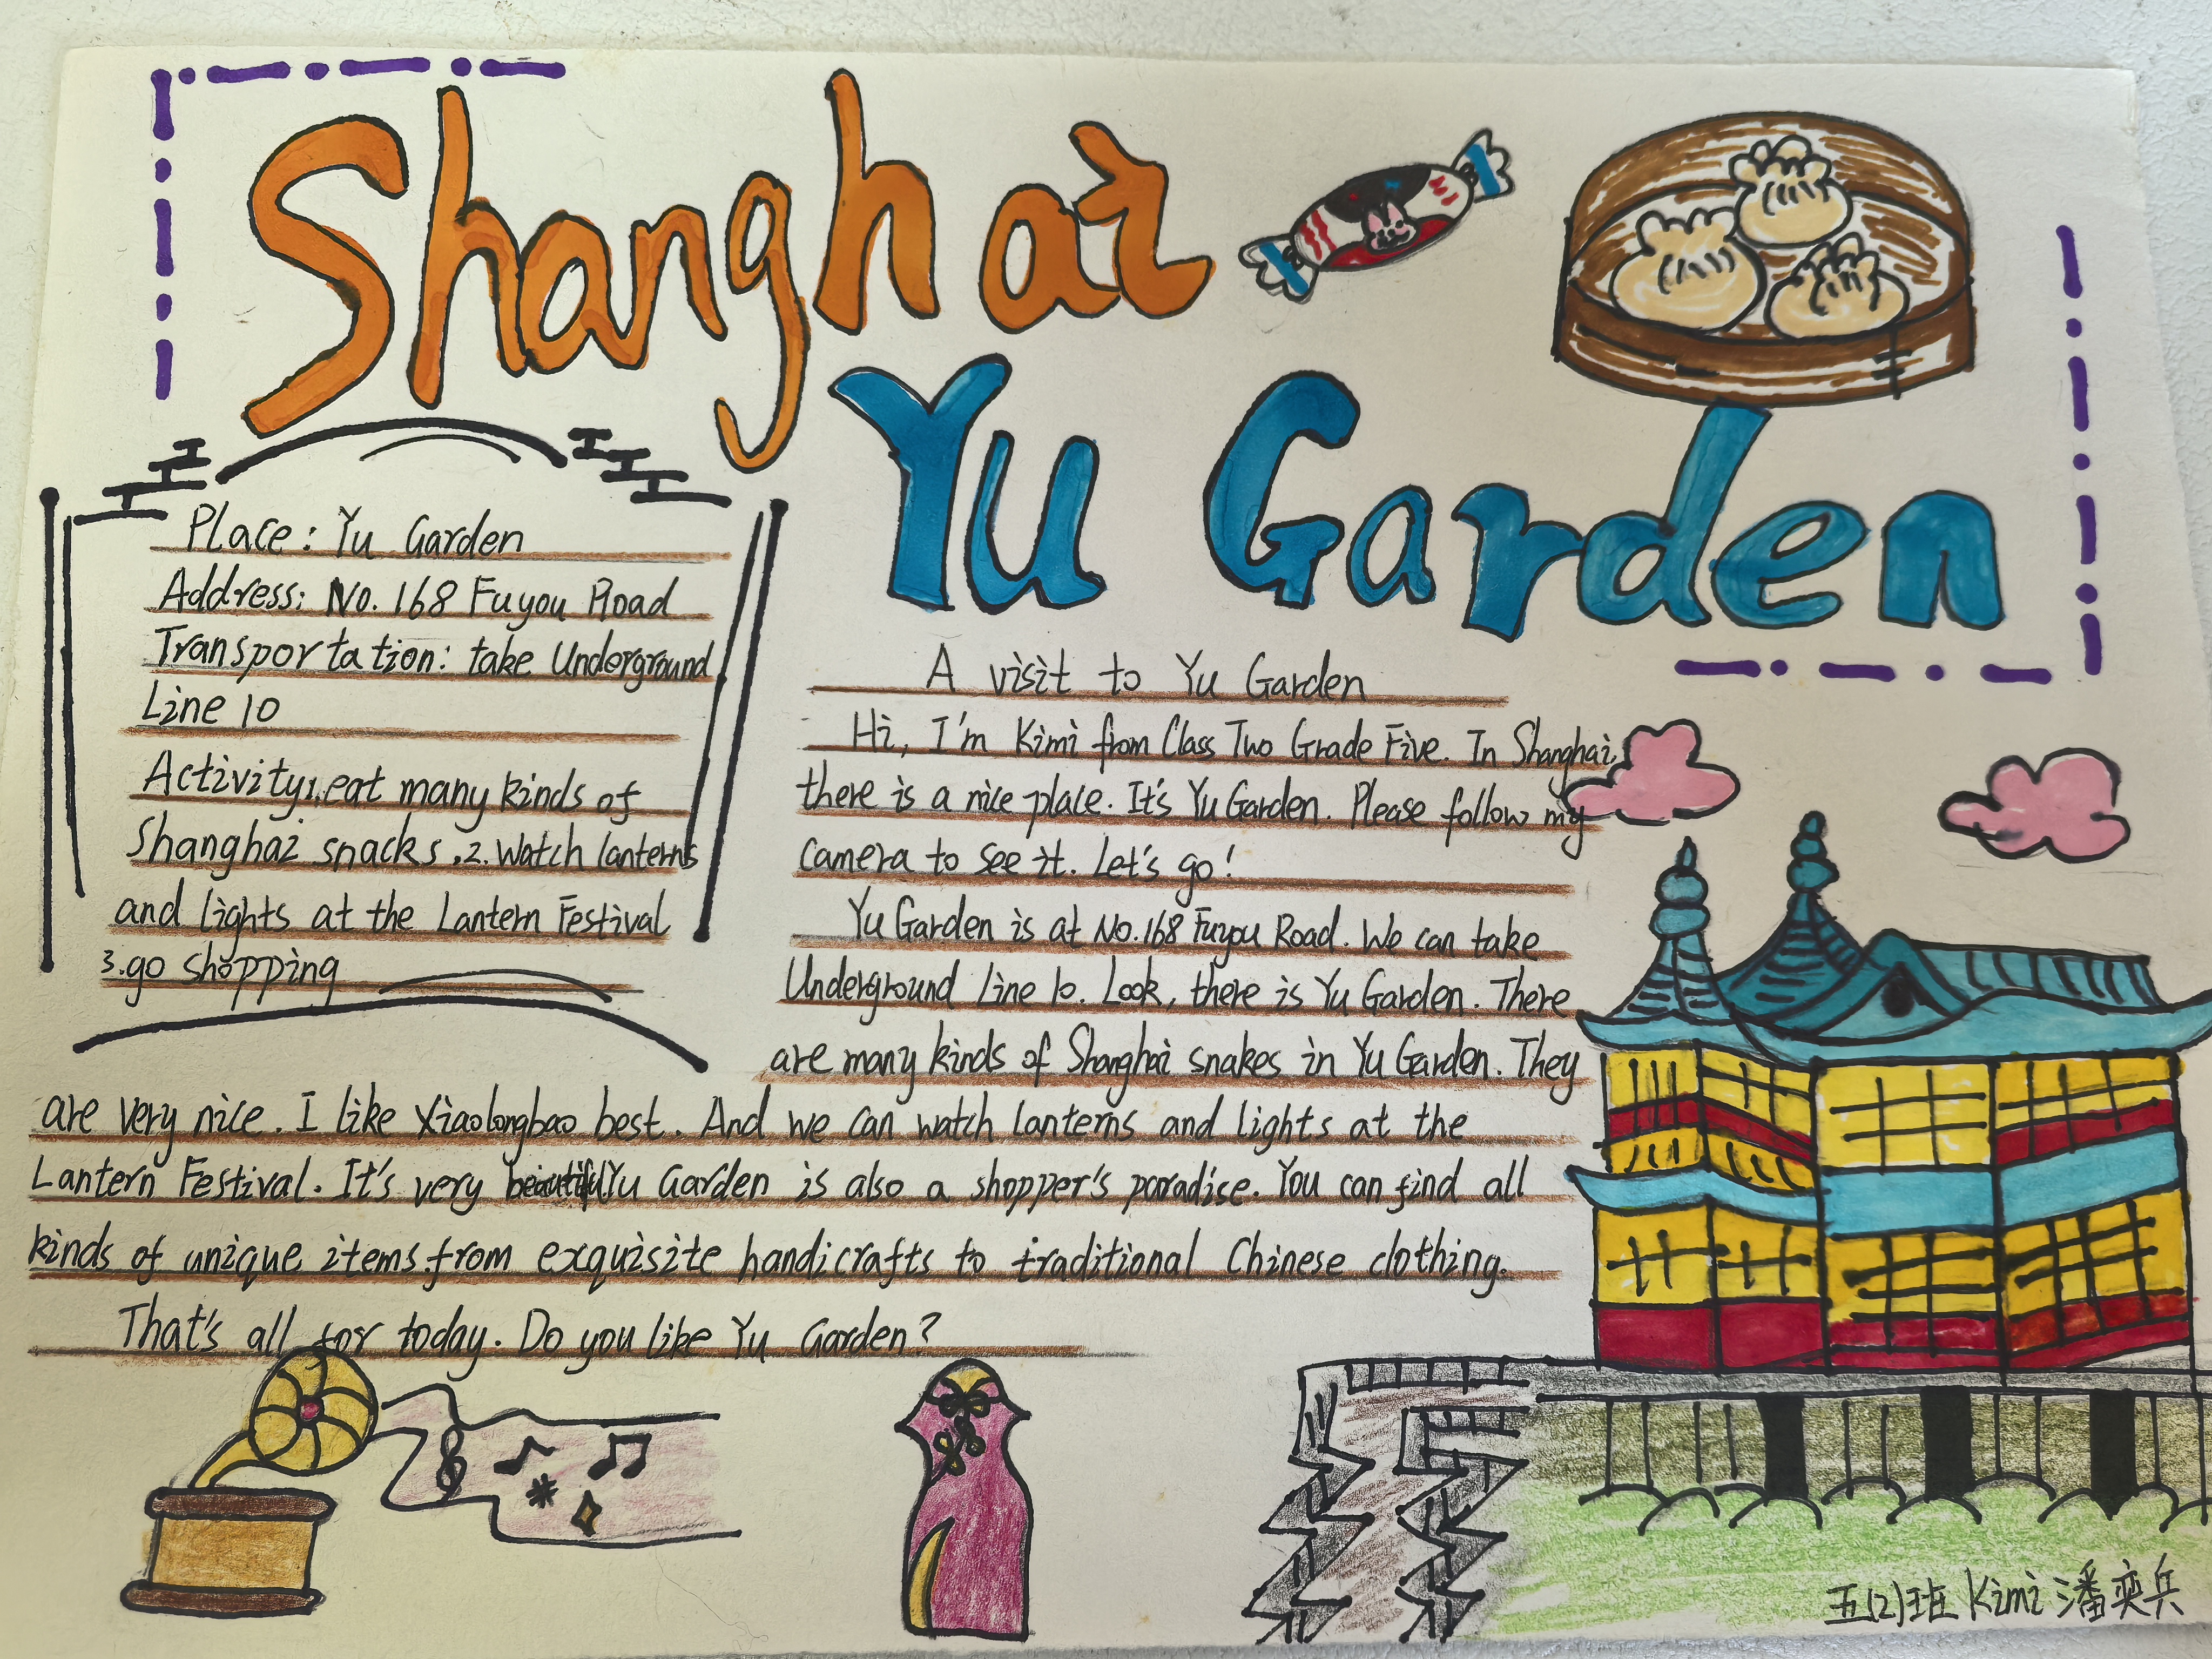 Shanghai
Yu Garden
Place: Yu Garden
Address: No. 168 Fuyou Road
Transportation: take Underground
Line 10
Activity:1.eat many kinds of
Shanghai snacks .2. Watch lanterns
and lights at the Lantern Festival
3.go shopping
A visit to Yu Garden
Hi, I'm Kimi from Class Two Grade Five. In Shanghai,
there is a nice place. It's Yu Garden. Please follow my
camera to see it. Let's go!
Yu Garden is at No.168 Fuyou Road. We can take
Underground Line 10. Look, there is Yu Garden. There
are many kinds of Shanghai snakes in Yu Garden. They
are very nice. I like Xiaolongbao best. And we can watch lanterns and lights at the
Lantern Festival. It's very beautiful.Yu Garden is also a shopper's paradise. You can find all
kinds of unique items from exquisite handicrafts to traditional Chinese clothing.
That's all for today. Do you like Yu Garden?
五(2)班 Kimi 潘奕兵